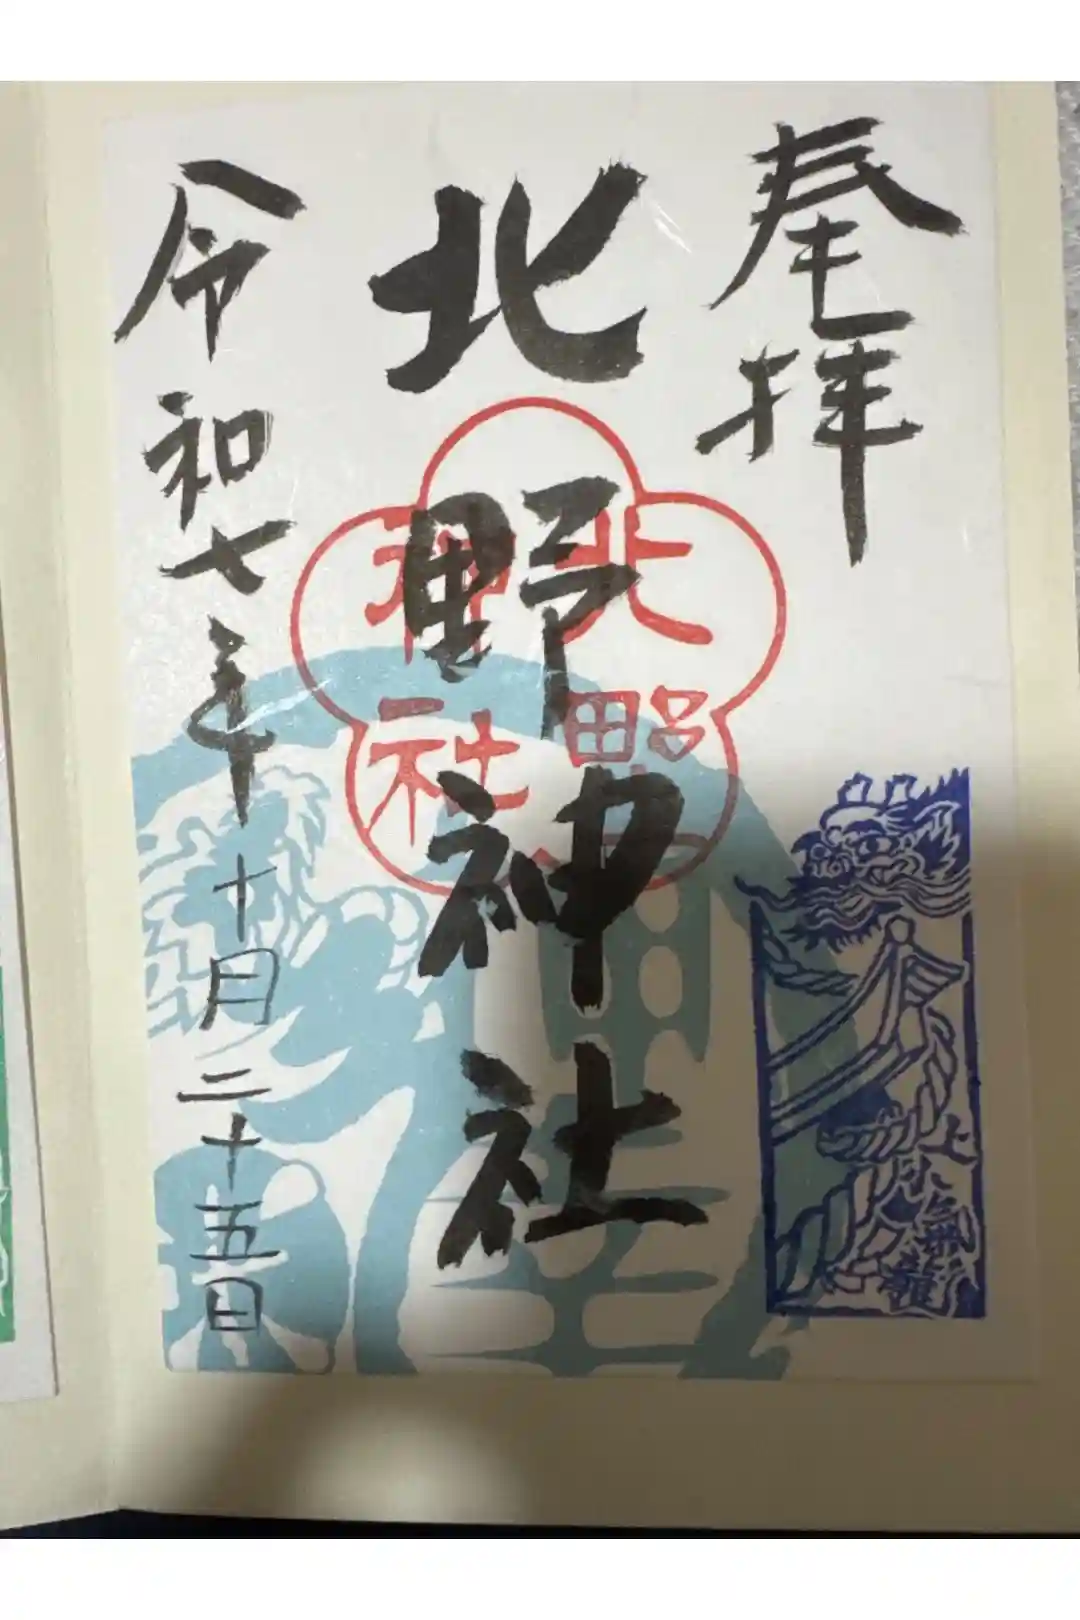 奉拝
北野神社
北野神社
令和七年十月二十五日